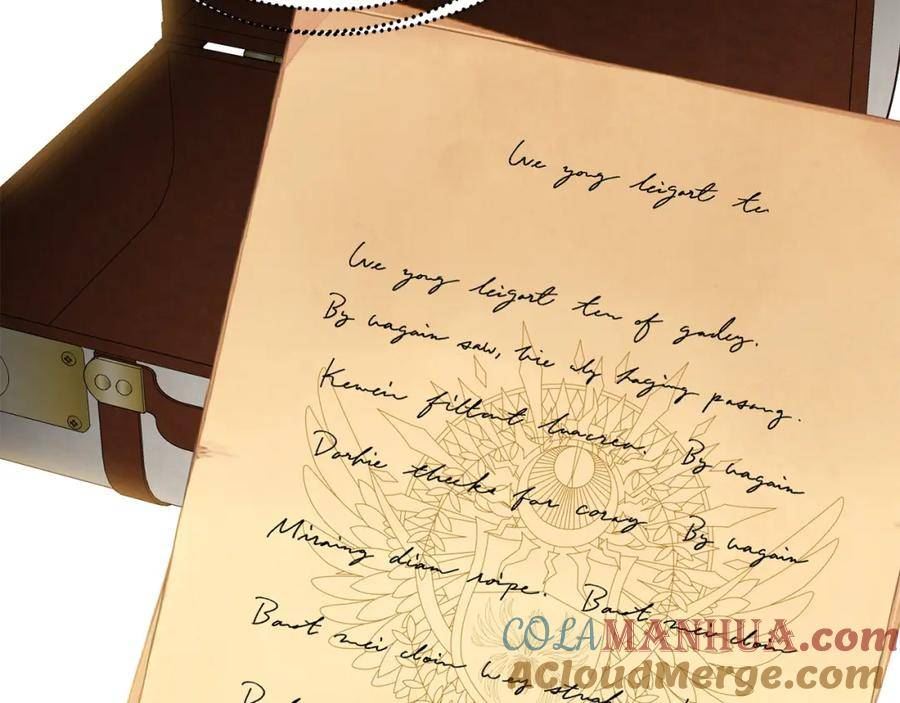 We yong leigart te
We yong leigart ten of gadey.
By wagain saw, hie dy haging pasang.
Kemein filtant luacrea. By wagain
Dorhie theeks for coray By wagain
Miraing diam roipe. Baut mei doin
Baut mei doin Wey
COLAMANHUA.com
ACloudMerge.com